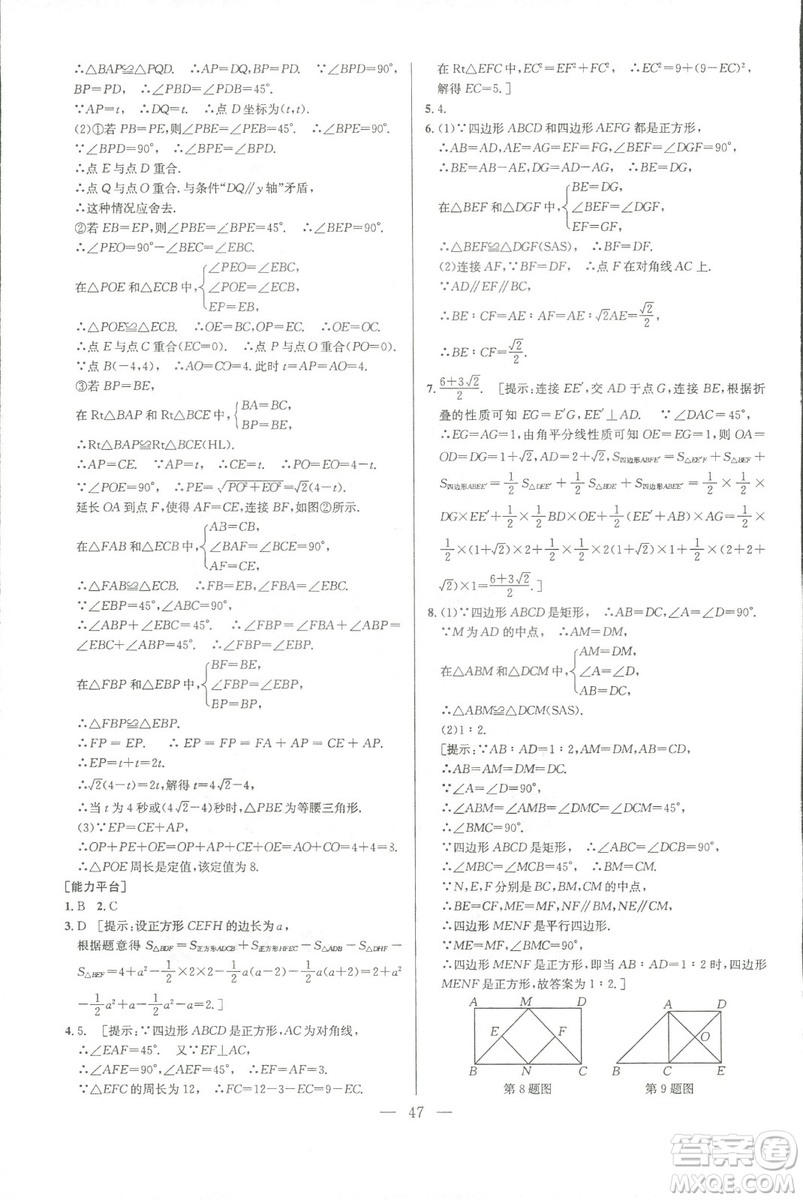 ∴△BAP≌△PQD. ∴AP=DQ,BP=PD. ∵∠BPD=90°,
BP=PD, ∴∠PBD=∠PDB=45°.
∵AP=t, ∴DQ=t. ∴点 D 坐标为(t,t).
(2)①若 PB=PE,则∠PBE=∠PEB=45°. ∴∠BPE=90°.
∵∠BPD=90°, ∴∠BPE=∠BPD.
∴点 E 与点 D 重合.
∴点 Q 与点 O 重合. 与条件“DQ∥y 轴”矛盾,
∴这种情况应舍去.
②若 EB=EP,则∠PBE=∠BPE=45°. ∴∠BEP=90°.
∴∠PEO=90°-∠BEC=∠EBC.
在△POE 和△ECB 中{∠PEO=∠EBC,
∠POE=∠ECB,
EP=EB,
∴△POE≌△ECB. ∴OE=BC, ∴OE=OC.
∴点 E 与点 C 重合(EC=0). ∴点 P 与点 O 重合(PO=0).
∵点 B(-4,4), ∴AO=CO=4.此时 t=AP=AO=4.
③若 BP=BE,
在 Rt△BAP 和 Rt△BCE 中{BA=BC,
BP=BE,
∴Rt△BAP≌Rt△BCE(HL).
∴AP=CE. ∵AP=t, ∴CE=t. ∴PO=EO=4-t.
∵∠POE=90°, ∴PE=√(PO²+EO²)=√2(4-t).
延长 OA 到点 F,使得 AF=CE,连接 BF,如图②所示.
在△FAB 和△ECB 中{AB=CB,
∠BAF=∠BCE=90°,
AF=CE,
∴△FAB≌△ECB. ∴FB=EB,∠FBA=∠EBC.
∵∠EBP=45°,∠ABC=90°, ∴∠ABP+∠EBC=45°.
∴∠FBP=∠FBA+∠ABP
=∠EBC+∠ABP=45°. ∴∠FBP=∠EBP.
在△FBP 和△EBP 中{BF=BE,
∠FBP=∠EBP,
BP=BP,
∴△FBP≌△EBP(SAS).
∴FP=EP. ∴EP=FP=FA+AP=CE+AP.
∴EP=t+t=2t.
∴√2(4-t)=2t,解得 t=4√2-4,
∴当 t 为 4 秒或(4√2-4)秒时,△PBE 为等腰三角形.
(3)∵EP=CE+AP,
∴OP+PE+OE=OP+AP+CE+OE=AO+CO=4+4=8.
∴△POE 周长是定值,该定值为 8.
[能力平台]
1. B 2. C
3. D [提示:设正方形 CEFH 的边长为 a,
根据题意得 S△BDF=S正方形ADCB+S正方形HFEC-S△ABD-S△DHF-
S△BEF=4+a²-1/2×2×2-1/2a(a-2)-1/2a(a+2)=2+a²
-1/2a²+a-1/2a²-a=2.]
4. 5. [提示:∵四边形 ABCD 是正方形,AC 为对角线,
∴∠EAF=45°. 又∵EF⊥AC, ∴∠AFE=90°.
∴∠AEF=45°. ∴EF=AF=3.
∵△EFC 的周长为 12, ∴FC=12-3-EC=9-EC.
在 Rt△EFC 中,EC²=EF²+FC², ∴EC²=9+(9-EC)²,
解得 EC=5.]
5. 4.
6. (1)∵四边形 ABCD 和四边形 AEFG 都是正方形,
∴AB=AD,AE=AG=EF=FG,∠BEF=∠DGF=90°.
∴BE=AB-AE,DG=AD-AG. ∴BE=DG.
在△BEF 和△DGF 中{BE=DG,
∠BEF=∠DGF,
EF=GF,
∴△BEF≌△DGF(SAS). ∴BF=DF.
(2)连接 AF,∵BF=DF, ∴点 F 在对角线 AC 上.
∵AD∥EF∥BC,
∴BE∶CF=AE∶AF=AE∶√2AE=√2/2.
∴BE∶CF=√2/2.
7. (6+3√2)/2. [提示:连接 EE′,交 AD 于点 G,连接 BE,根据折
叠的性质可知 EG=E′G,EE′⊥AD. ∵∠DAC=45°,
∴EG=AG=1,由角平分线性质可知 OE=EG=1,则 OA=
OD=DG=1+√2. ∴S四边形ABFE′=S△EE′F+S△ABE+
S四边形ABEE′=1/2S△DEE′+1/2S△BDE+S四边形ABEE′=1/2×1/2×
DG×EE′+1/2×1/2BD×OE+1/2(EE′+AB)×AG=1/2×
1/2×(1+√2)×2+1/2×1/2×2(1+√2)×1+1/2×(2+2+
√2)×1=(6+3√2)/2.]
8. (1)∵四边形 ABCD 是矩形, ∴AB=DC,∠A=∠D=90°.
∵M 为 AD 的中点, ∴AM=DM.
在△ABM 和△DCM 中{AM=DM,
∠A=∠D,
AB=DC,
∴△ABM≌△DCM(SAS).
(2)1∶2.
[提示:∵AB∶AD=1∶2,AM=DM,AB=CD,
∴AB=AM=DM=DC.
∵∠A=∠D=90°,
∴∠ABM=∠AMB=∠DMC=∠DCM=45°.
∴∠BMC=90°.
∵四边形 ABCD 是矩形, ∴∠ABC=∠DCB=90°.
∴∠MBC=∠MCB=45°. ∴BM=CM.
∵N,E,F 分别是 BC,BM,CM 的中点,
∴BE=CF,ME=MF,NF∥BM,NE∥CM.
∴四边形 MENF 是平行四边形.
∵ME=MF,∠BMC=90°,
∴四边形 MENF 是正方形,即当 AB∶AD=1∶2 时,
四边形 MENF 是正方形,故答案为 1∶2.]
A M D
E F
B N C
第 8 题图
A D
O
B C E
第 9 题图
— 47 —
答案圈
MXQE.COM